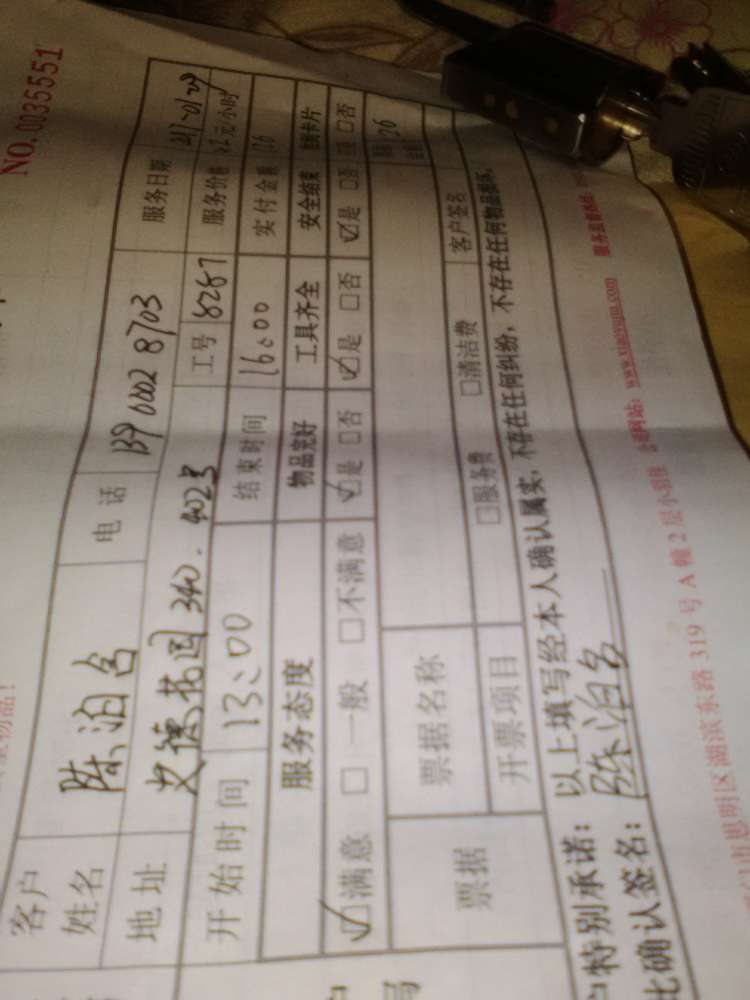 NO.0035551
客户姓名 陈泊名 电话 139 0002 8703 服务日期
地址 340.4023 工号 8287 服务价格 元/小时
开始时间 13:00 结束时间 16:00 实付金额
服务态度 物品完好 工具齐全 安全结束
☑满意 □一般 □不满意 ☑是 □否 ☑是 □否 ☑是 □否 □否
票据 票据名称
开票项目 □服务费 □清洁费 客户签名
特别承诺: 以上填写经本人确认属实,不存在任何纠纷,不存在任何物品损坏,
比确认签名: 陈泊名
市思明区湖滨东路 319 号 A 幢 2 层小羽佳 www.xiaoyujia.com 服务监督热线: